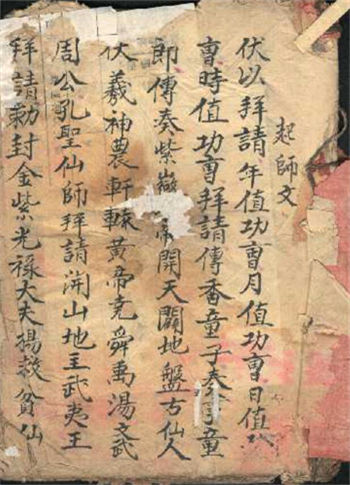 起師文
伏以拜請年值功曹月值功曹日值功
曹時值功曹拜請傳香童子奏童
郎傳奏紫微帝開天闢地盤古仙人
伏羲神農軒轅黃帝堯舜禹湯文武
周公孔聖仙師拜請開山地主武夷王
拜請勅封金紫光祿大夫揚救貧仙